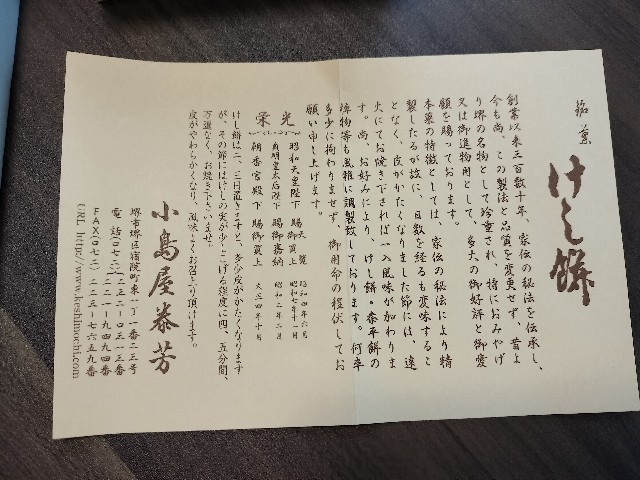 銘菓
けし餅
創業以来三百数十年、家伝の秘法を伝承し、
今も尚、この製法と品質を変更せず、昔よ
り堺の名物として珍重され、特におみやげ
又は御進物用として、多大の御好評と御愛
顧を賜っております。
本菓の特徴としては、家伝の秘法により精
製したるが故に、日数を経るも変味すること
となく、皮がかたくなりました節には、遠
火にてお焼き下されば一入風味が加わりま
す。尚、お好みにより、けし餅・泰平餅の
博物等も風雅に調製致しております。何卒
多少に拘わりませず、御用命の程伏してお
願い申し上げます。
栄光
昭和天皇陛下 賜天覧 昭和四年六月
貞明皇太后陛下 賜御嘉納 昭和二年二月
朝香宮殿下 賜御買上 大正四年十月
けし餅は二、三日置きますと、多少皮がかたくなります
が、その節にはけしの実が少しこげる程度に四、五分間、
万遍なく、お焼き下さいませ。
皮がやわらかくなり、風味よくお召上り頂けます。
小島屋泰芳
堺市堺区宿院町東一丁一番二三号
電話(〇七二)二三二―〇三一三番
二二一―九四九四番
FAX(〇七二)二二三―七六五九番
URL http://www.keshimochi.com